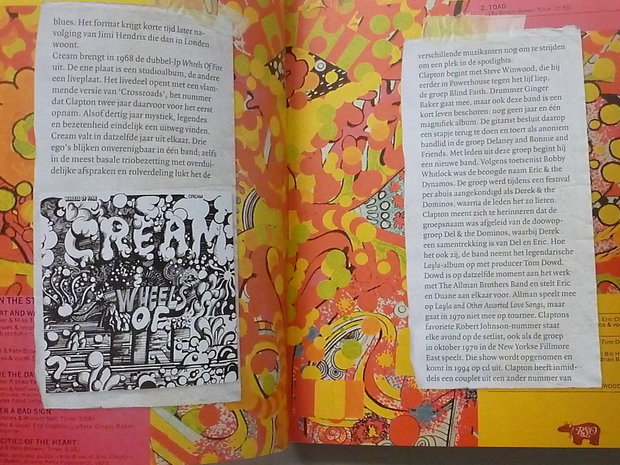 blues. Het format krijgt korte tijd later na-
volging van Jimi Hendrix die dan in Londen
woont.
Cream brengt in 1968 de dubbel-lp Wheels Of Fire
uit. De ene plaat is een studioalbum, de andere
een liveplaat. Het livedeel opent met een vlam-
mende versie van ‘Crossroads’, het nummer
dat Clapton twee jaar daarvoor voor het eerst
opnam. Alsof dertig jaar mystiek, legendes
en bezetenheid eindelijk een uitweg vinden.
Cream valt in datzelfde jaar uit elkaar. Drie
ego’s blijken onverenigbaar in één band; zelfs
in de meest basale triobezetting met overdui-
delijke afspraken en rolverdeling lukt het de
WHEELS OF FIRE
CREAM
CREAM
WHEELS
OF
FIRE
2. TOAD
verschillende muzikanten nog om te strijden
om een plek in de spotlights.
Clapton begint met Steve Winwood, die hij
eerder in Powerhouse tegen het lijf liep,
de groep Blind Faith. Drummer Ginger
Baker gaat mee, maar ook deze band is een
kort leven beschoren: nog geen jaar en één
magnifiek album. De gitarist besluit daarop
een stapje terug te doen en toert als anoniem
bandlid in de groep Delaney and Bonnie and
Friends. Met leden uit deze groep begint hij
een nieuwe band. Volgens toetsenist Bobby
Whitlock was de beoogde naam Eric & the
Dynamos. De groep werd tijdens een festival
per abuis aangekondigd als Derek & the
Dominos, waarna de leden het zo lieten.
Clapton meent zich te herinneren dat de
groepsnaam was afgeleid van de doowop-
groep Del & the Dominos, waarbij Derek
een samentrekking is van Del en Eric. Hoe
het ook zij, de band neemt het legendarische
Layla-album op met producer Tom Dowd.
Dowd is op datzelfde moment aan het werk
met The Allman Brothers Band en stelt Eric
en Duane aan elkaar voor. Allman speelt mee
op Layla and Other Assorted Love Songs, maar
gaat in 1970 niet mee op tournee. Claptons
favoriete Robert Johnson-nummer staat
elke avond op de setlist, ook als de groep
in oktober 1970 in de New Yorkse Fillmore
East speelt. Die show wordt opgenomen en
komt in 1994 op cd uit. Clapton heeft inmid-
dels een couplet uit een ander nummer van
RSO